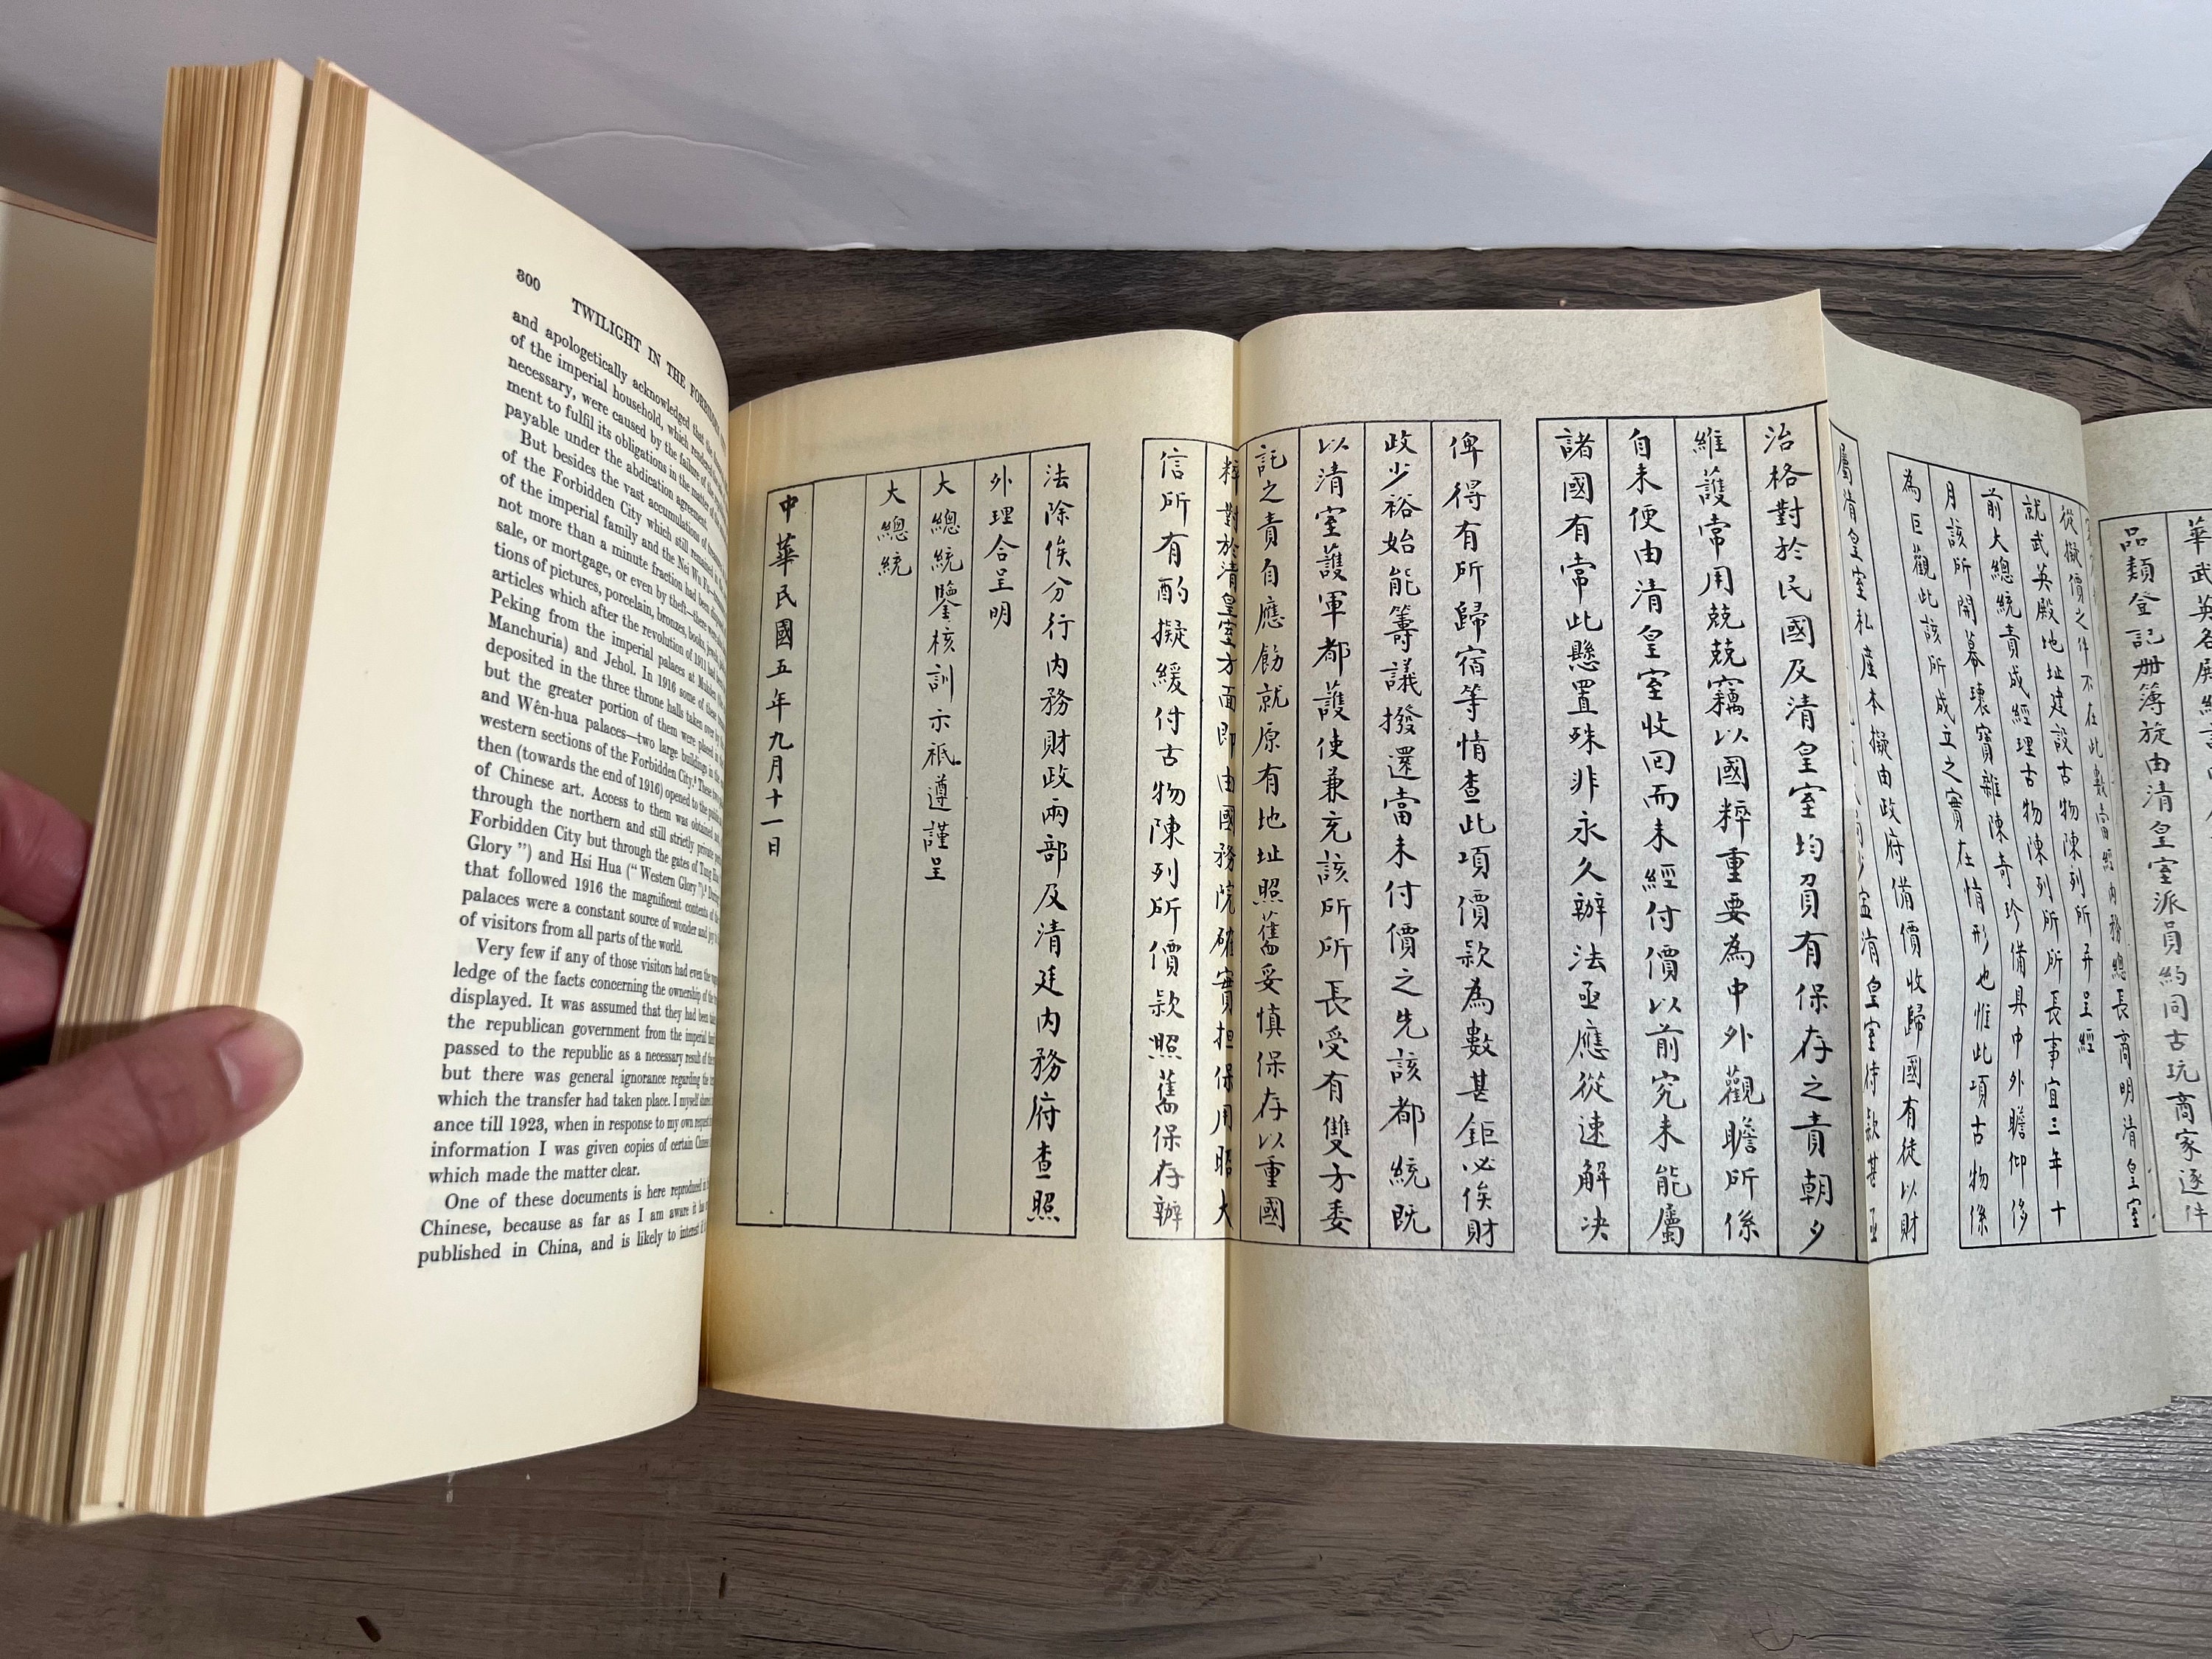 300 TWILIGHT IN THE FORBIDDEN
and apologetically acknowledged that the
of the imperial household, which rendered
necessary, were caused by the failure of the
ment to fulfil its obligations in the matter of the
payable under the abdication agreement.
But besides the vast accumulations of
of the Forbidden City which still remained in
of the imperial family and the Nei Wu Fu
not more than a minute fraction had been
sale, or mortgage, or even by theft—there were
tions of pictures, porcelain, bronzes, books,
articles which after the revolution of 1911 had been
Peking from the imperial palaces at Mukden
Manchuria) and Jehol. In 1916 some of these
deposited in the three throne halls taken over by
but the greater portion of them were placed
and Wên-hua palaces—two large buildings in the
western sections of the Forbidden City. These
then (towards the end of 1916) opened to the public
of Chinese art. Access to them was obtained not
through the northern and still strictly private
Forbidden City but through the gates of Tung Hua
Glory ") and Hsi Hua (" Western Glory ").
that followed 1916 the magnificent contents of the
palaces were a constant source of wonder and joy to
of visitors from all parts of the world.
Very few if any of those visitors had even the
ledge of the facts concerning the ownership of the
displayed. It was assumed that they had been
the republican government from the imperial
passed to the republic as a necessary result of the
but there was general ignorance regarding the
which the transfer had taken place. I myself
ance till 1923, when in response to my own request
information I was given copies of certain Chinese
which made the matter clear.
One of these documents is here reproduced in
Chinese, because as far as I am aware it has
published in China, and is likely to interest
華武英各殿
品類登記册簿旋由清皇室派員約同古玩商家逐件
從擬價之件不在此數當經內務總長商明清皇室
就武英殿地址建設古物陳列所并呈經
前大總統責成經理古物陳列所所長事宜三年十
月該所開幕瓌寶雜陳奇珍備具中外瞻仰侈
為巨觀此該所成立之實在情形也惟此項古物係
屬清皇室私產本擬由政府備價收歸國有徒以財
清皇室待款甚亟
治格對於民國及清皇室均負有保存之責朝夕
維護常用兢兢竊以國粹重要為中外觀瞻所係
自未便由清皇室收回而未經付價以前究未能屬
諸國有常此懸置殊非永久辦法亟應從速解决
俾得有所歸宿等情查此項價款為數甚鉅必俟財
政少裕始能籌議撥還當未付價之先該都統既
以清室護軍都護使兼充該所所長受有雙方委
託之責自應飭就原有地址照舊妥慎保存以重國
粹對於清皇室方面即由國務院確實担保用昭大
信所有酌擬緩付古物陳列所價款照舊保存辦
法除俟分行內務財政兩部及清廷內務府查照
外理合呈明
大總統鑒核訓示祇遵謹呈
大總統
中華民國五年九月十一日